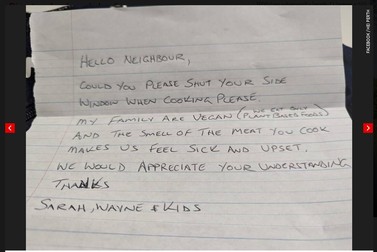 HELLO NEIGHBOUR,
COULD YOU PLEASE SHUT YOUR SIDE
WINDOW WHEN COOKING PLEASE,
MY FAMILY ARE VEGAN (WE EAT ONLY PLANT BASED FOODS)
AND THE SMELL OF THE MEAT YOU COOK
MAKES US FEEL SICK AND UPSET.
WE WOULD APPRECIATE YOUR UNDERSTANDING
THANKS
SARAH, WAYNE & KIDS
FACEBOOK / HEI PERTH